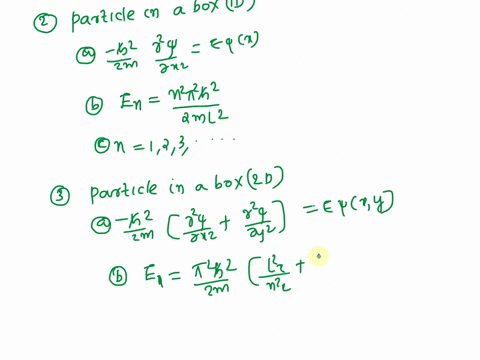 ② particle in a box (1D)
ⓐ -ħ²/2m ∂²ψ/∂x² = Eψ(x)
ⓑ En = n²π²ħ²/2mL²
ⓒ n = 1, 2, 3, ....
③ particle in a box (2D)
ⓐ -ħ²/2m [∂²ψ/∂x² + ∂²ψ/∂y²] = Eψ(x,y)
ⓑ En = π²ħ²/2m [L²x/n²x +